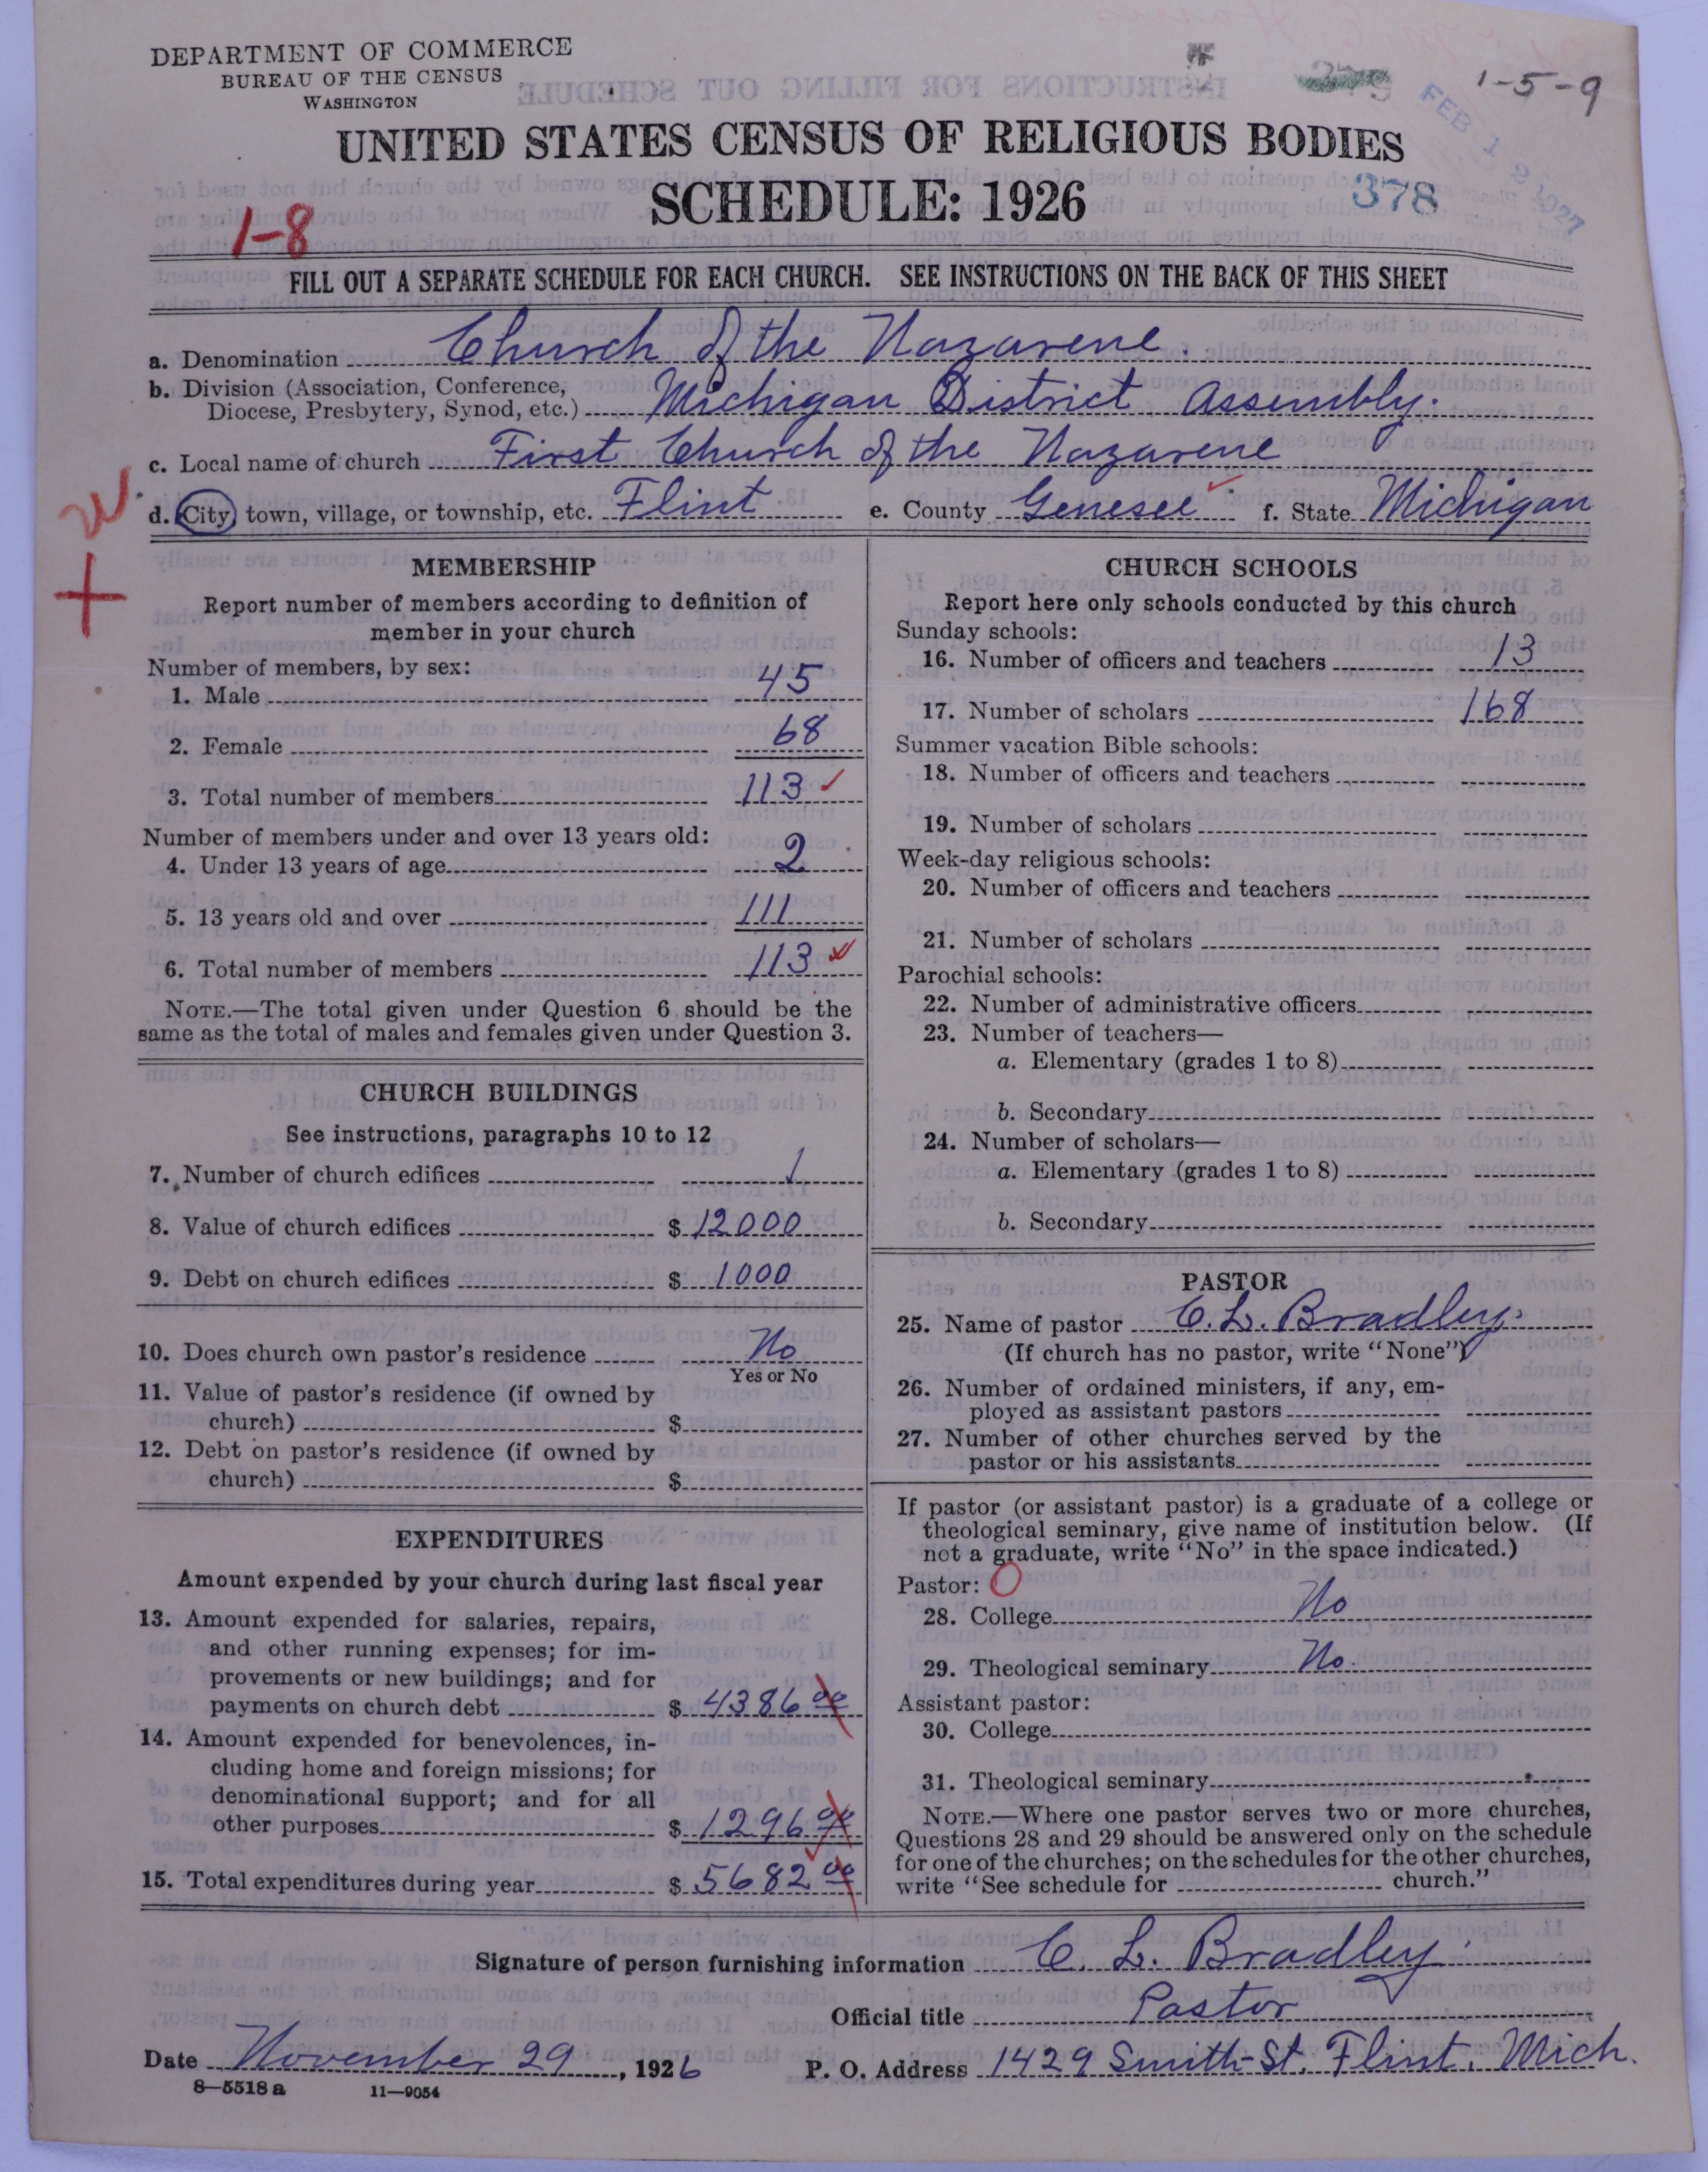 DEPARTMENT OF COMMERCE
BUREAU OF THE CENSUS
WASHINGTON
1-5-9
FEB 12 1927
UNITED STATES CENSUS OF RELIGIOUS BODIES
SCHEDULE: 1926
378
1-8
FILL OUT A SEPARATE SCHEDULE FOR EACH CHURCH. SEE INSTRUCTIONS ON THE BACK OF THIS SHEET
a. Denomination Church of the Nazarene.
b. Division (Association, Conference,
Diocese, Presbytery, Synod, etc.) Michigan District Assembly.
c. Local name of church First Church of the Nazarene
d. City, town, village, or township, etc. Flint e. County Genesee f. State Michigan
MEMBERSHIP
Report number of members according to definition of
member in your church
Number of members, by sex:
1. Male 45
2. Female 68
3. Total number of members 113
Number of members under and over 13 years old:
4. Under 13 years of age 2
5. 13 years old and over 111
6. Total number of members 113
NOTE.—The total given under Question 6 should be the
same as the total of males and females given under Question 3.
CHURCH BUILDINGS
See instructions, paragraphs 10 to 12
7. Number of church edifices 1
8. Value of church edifices $ 12000
9. Debt on church edifices $ 1000
10. Does church own pastor's residence No
Yes or No
11. Value of pastor's residence (if owned by
church) $
12. Debt on pastor's residence (if owned by
church) $
EXPENDITURES
Amount expended by your church during last fiscal year
13. Amount expended for salaries, repairs,
and other running expenses; for im-
provements or new buildings; and for
payments on church debt $ 4386 00
14. Amount expended for benevolences, in-
cluding home and foreign missions; for
denominational support; and for all
other purposes $ 1296 00
15. Total expenditures during year $ 5682 00
CHURCH SCHOOLS
Report here only schools conducted by this church
Sunday schools:
16. Number of officers and teachers 13
17. Number of scholars 168
Summer vacation Bible schools:
18. Number of officers and teachers
19. Number of scholars
Week-day religious schools:
20. Number of officers and teachers
21. Number of scholars
Parochial schools:
22. Number of administrative officers
23. Number of teachers—
a. Elementary (grades 1 to 8)
b. Secondary
24. Number of scholars—
a. Elementary (grades 1 to 8)
b. Secondary
PASTOR
25. Name of pastor C. L. Bradley.
(If church has no pastor, write "None")
26. Number of ordained ministers, if any, em-
ployed as assistant pastors
27. Number of other churches served by the
pastor or his assistants
If pastor (or assistant pastor) is a graduate of a college or
theological seminary, give name of institution below. (If
not a graduate, write "No" in the space indicated.)
Pastor:
28. College No
29. Theological seminary No.
Assistant pastor:
30. College
31. Theological seminary
NOTE.—Where one pastor serves two or more churches,
Questions 28 and 29 should be answered only on the schedule
for one of the churches; on the schedules for the other churches,
write "See schedule for church."
Signature of person furnishing information C. L. Bradley.
Official title Pastor
Date November 29, 1926 P. O. Address 1429 Smith St. Flint, Mich.
8—5518 a 11—9054